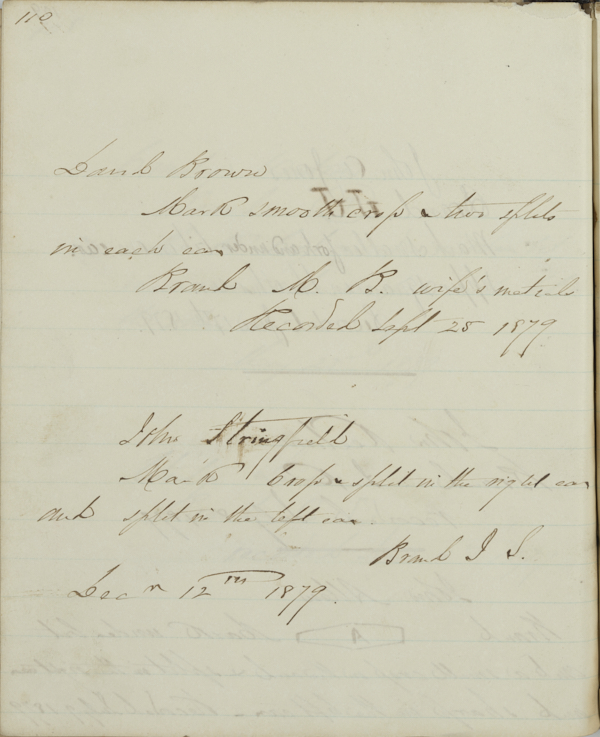 110
David Brown
Mark smooth crop & two splits
in each ear
Brand M. B. wife's initials
Recorded Sept 25 1879
John Stringfield
Mark Crop & split in the right ear
and split in the left ear.
Brand J S.
Dec r 12th 1879.